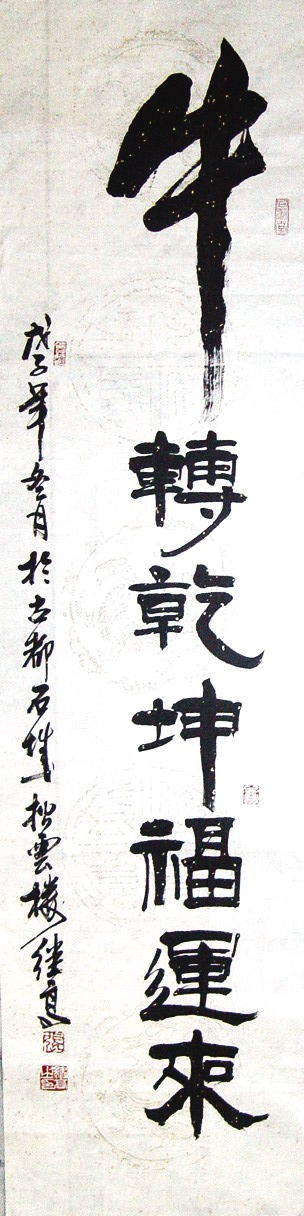 牛轉乾坤福運來
戊子年冬月於古都石城松雲樓继亮